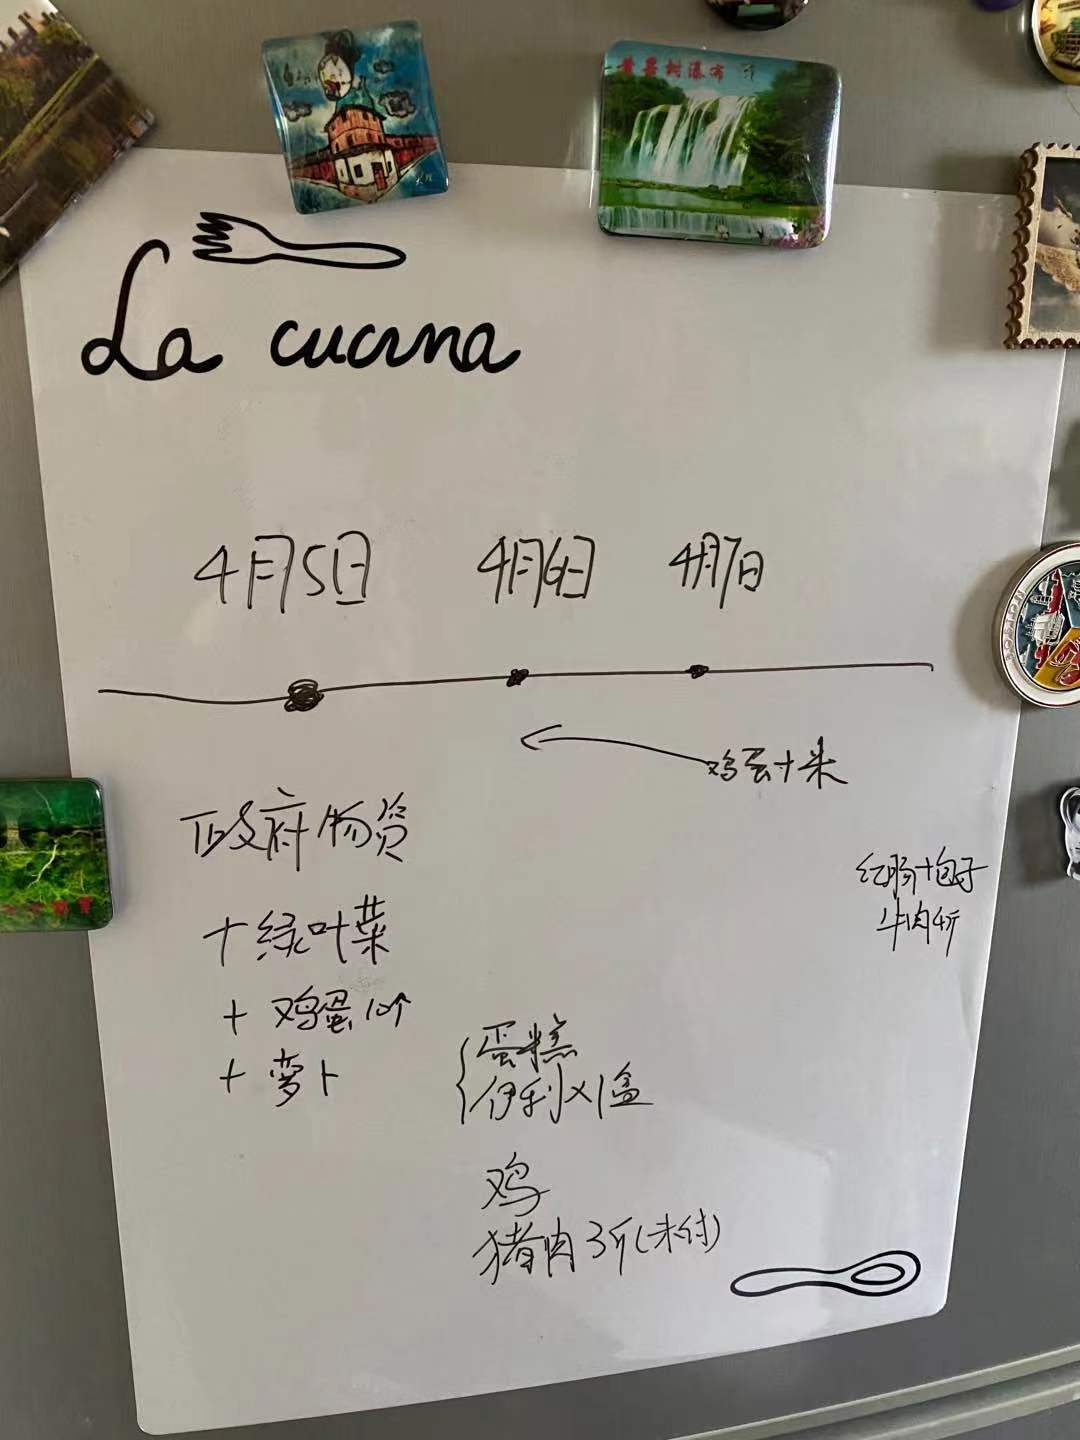 黄果树瀑布
La cucina
4月5日 4月6日 4月7日
鸡蛋+米
政府物资
+绿叶菜
+鸡蛋10个
+萝卜
红肠+包子
牛肉4斤
蛋糕
伊利×1盒
鸡
猪肉3斤(未付)